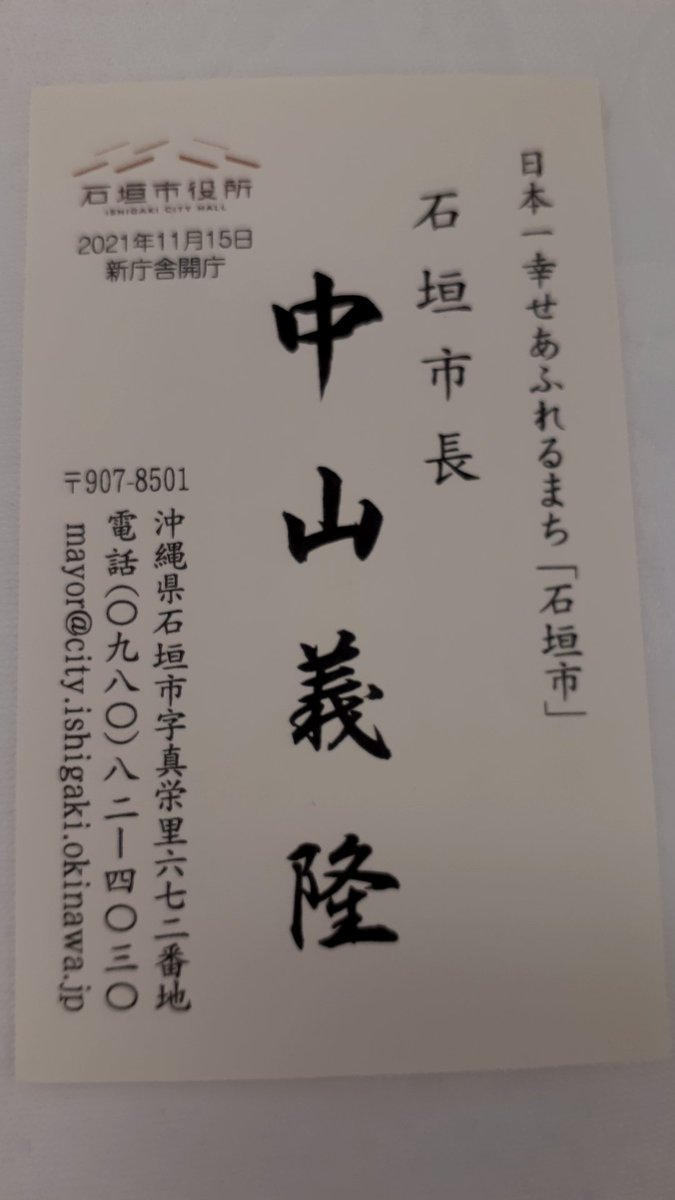 日本一幸せあふれるまち「石垣市」
石垣市長
中山義隆
石垣市役所
ISHIGAKI CITY HALL
2021年11月15日
新庁舎開庁
〒907-8501
沖縄県石垣市字真栄里六七二番地
電話(〇九八〇)八二―四〇三〇
mayor@city.ishigaki.okinawa.jp